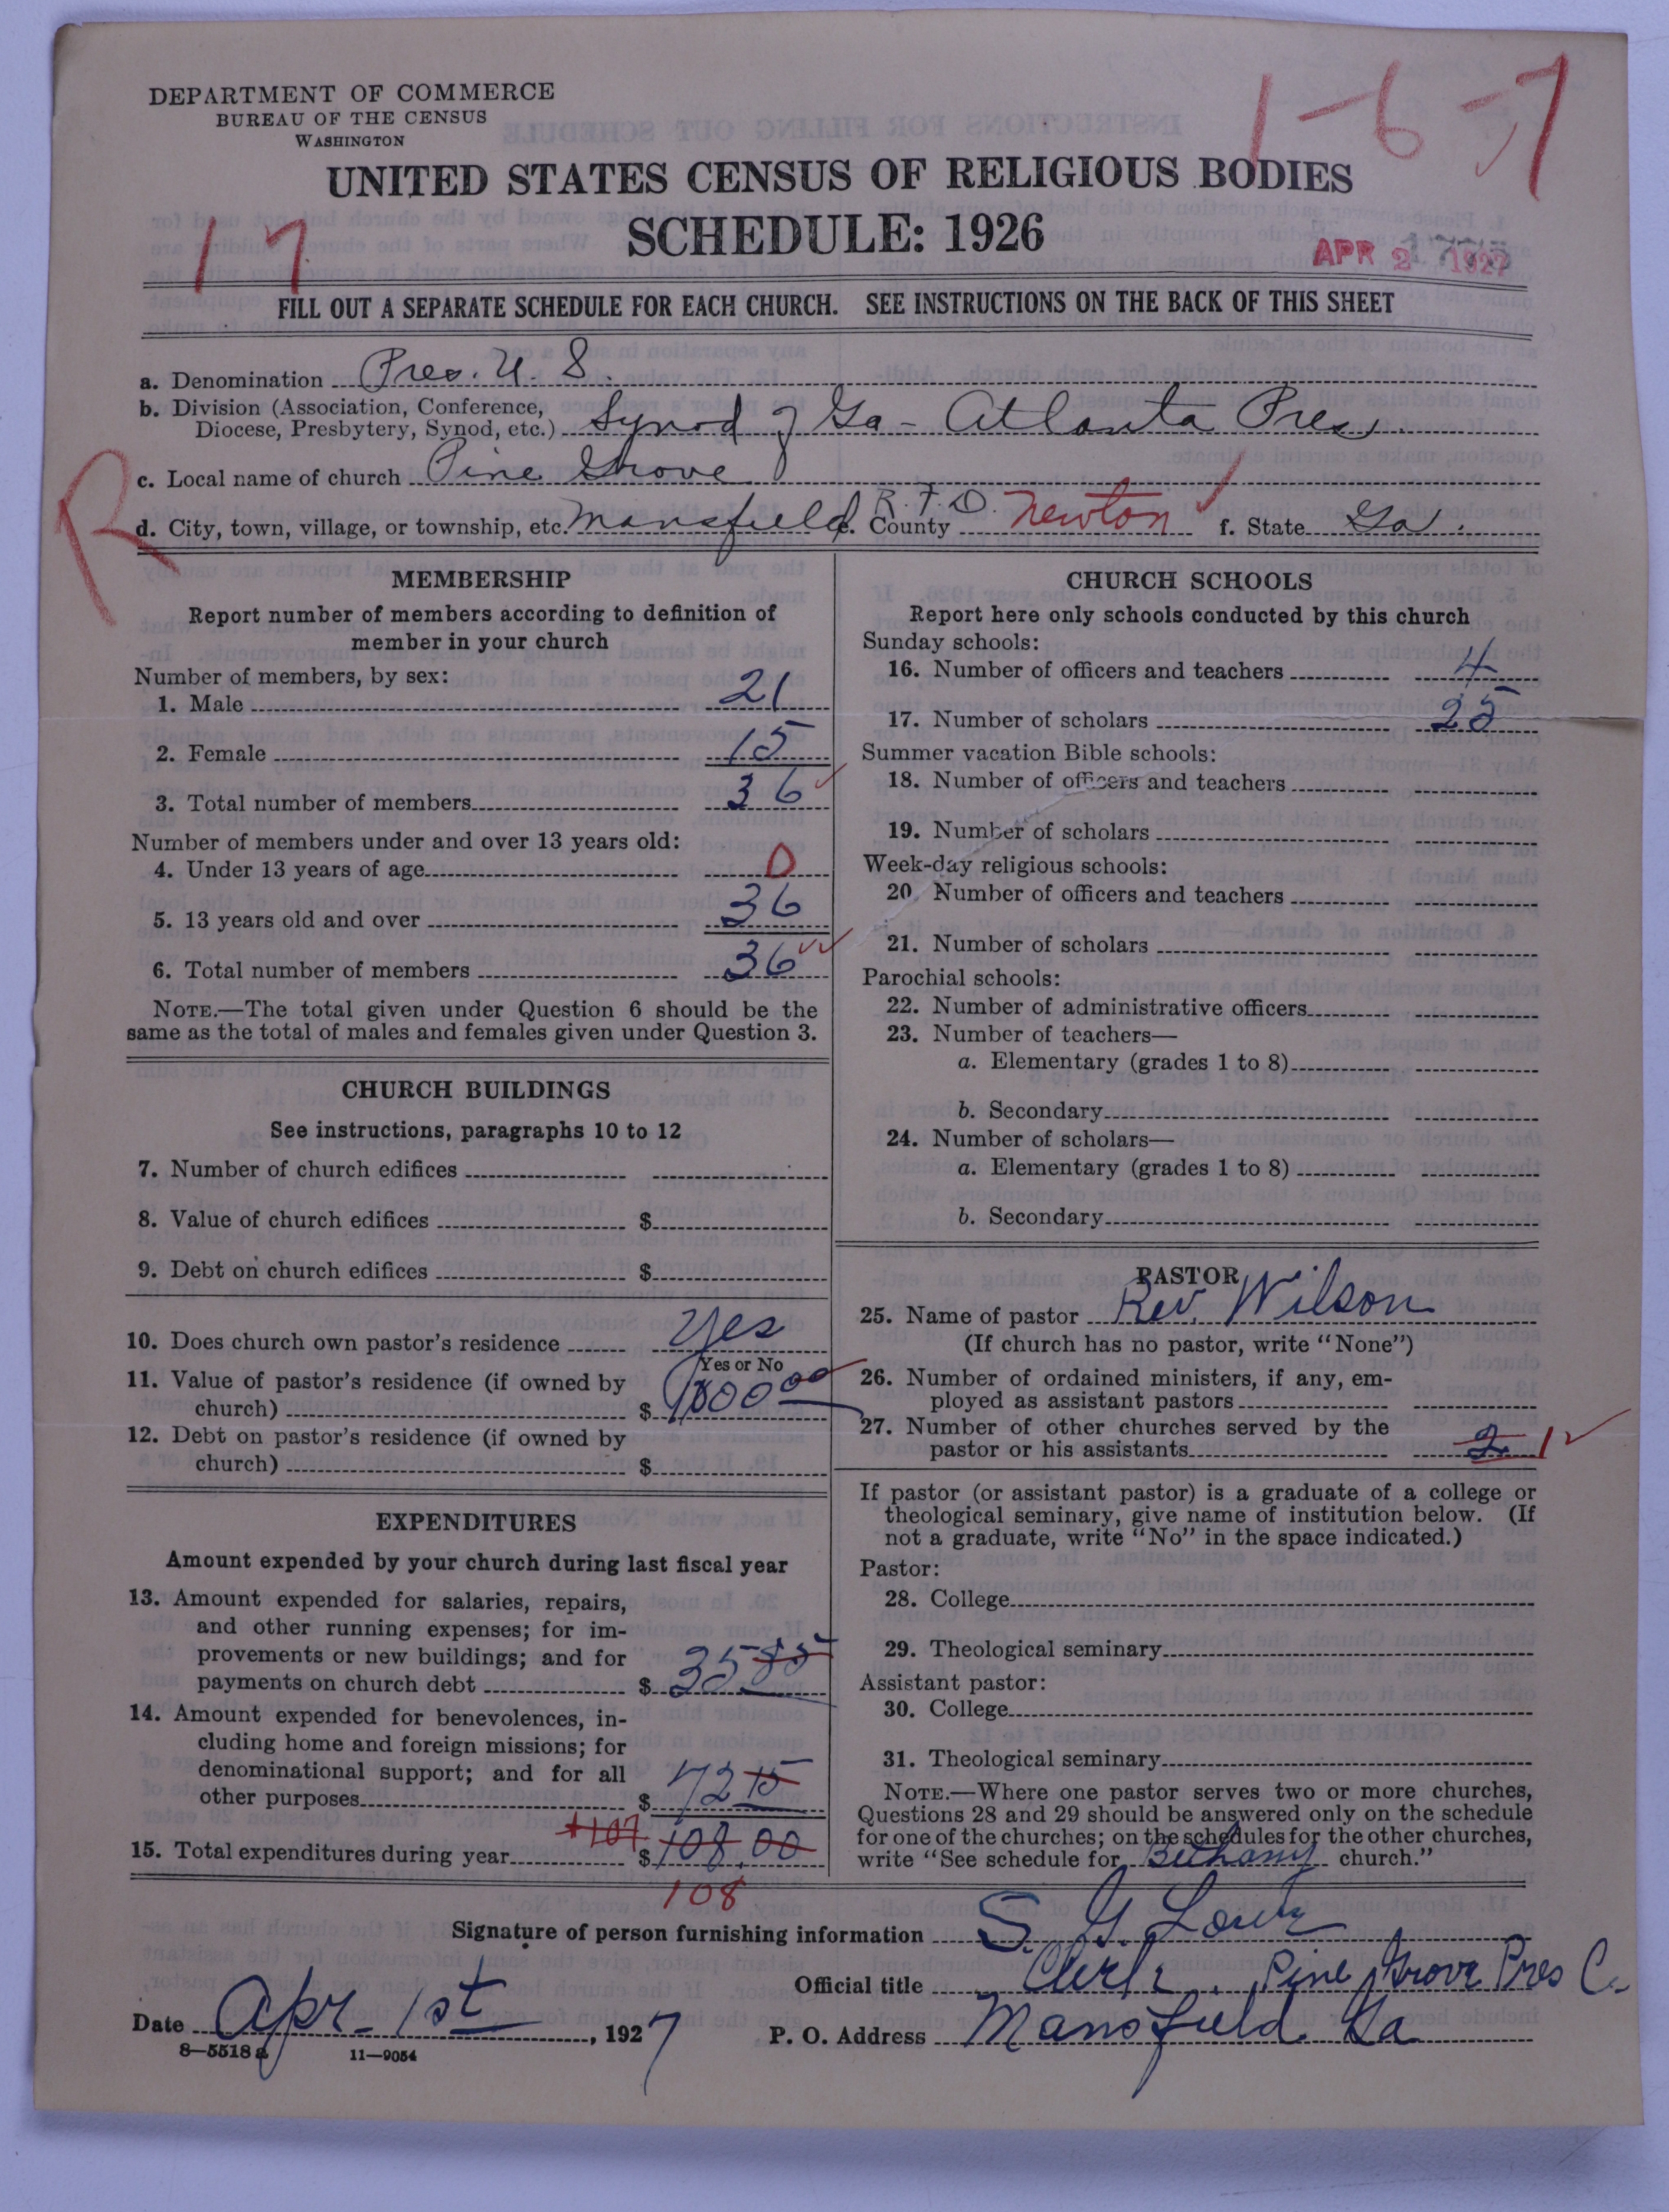 DEPARTMENT OF COMMERCE
BUREAU OF THE CENSUS
WASHINGTON
1-6-7
UNITED STATES CENSUS OF RELIGIOUS BODIES
SCHEDULE: 1926
17
APR 2 1927
FILL OUT A SEPARATE SCHEDULE FOR EACH CHURCH. SEE INSTRUCTIONS ON THE BACK OF THIS SHEET
a. Denomination Pres. U. S.
b. Division (Association, Conference,
Diocese, Presbytery, Synod, etc.) Synod of Ga - Atlanta Pres.
c. Local name of church Pine Grove
R
d. City, town, village, or township, etc. Mansfield R.F.D. e. County Newton f. State Ga.
MEMBERSHIP
Report number of members according to definition of
member in your church
Number of members, by sex:
1. Male 21
2. Female 15
3. Total number of members 36
Number of members under and over 13 years old:
4. Under 13 years of age 0
5. 13 years old and over 36
6. Total number of members 36
NOTE.—The total given under Question 6 should be the
same as the total of males and females given under Question 3.
CHURCH BUILDINGS
See instructions, paragraphs 10 to 12
7. Number of church edifices
8. Value of church edifices $
9. Debt on church edifices $
10. Does church own pastor's residence Yes
Yes or No
11. Value of pastor's residence (if owned by
church) $ 1000 00
12. Debt on pastor's residence (if owned by
church) $
EXPENDITURES
Amount expended by your church during last fiscal year
13. Amount expended for salaries, repairs,
and other running expenses; for im-
provements or new buildings; and for
payments on church debt $ 35 85
14. Amount expended for benevolences, in-
cluding home and foreign missions; for
denominational support; and for all
other purposes $ 72 15
107
15. Total expenditures during year $ 108.00
108
CHURCH SCHOOLS
Report here only schools conducted by this church
Sunday schools:
16. Number of officers and teachers 4
17. Number of scholars 25
Summer vacation Bible schools:
18. Number of officers and teachers
19. Number of scholars
Week-day religious schools:
20. Number of officers and teachers
21. Number of scholars
Parochial schools:
22. Number of administrative officers
23. Number of teachers—
a. Elementary (grades 1 to 8)
b. Secondary
24. Number of scholars—
a. Elementary (grades 1 to 8)
b. Secondary
PASTOR
25. Name of pastor Rev. Wilson
(If church has no pastor, write "None")
26. Number of ordained ministers, if any, em-
ployed as assistant pastors
27. Number of other churches served by the
pastor or his assistants 2 1
If pastor (or assistant pastor) is a graduate of a college or
theological seminary, give name of institution below. (If
not a graduate, write "No" in the space indicated.)
Pastor:
28. College
29. Theological seminary
Assistant pastor:
30. College
31. Theological seminary
NOTE.—Where one pastor serves two or more churches,
Questions 28 and 29 should be answered only on the schedule
for one of the churches; on the schedules for the other churches,
write "See schedule for Bethany church."
Signature of person furnishing information S. G.
Official title Clerk. Pine Grove Pres C.
Date Apr. 1st, 1927
P. O. Address Mansfield. Ga
8—5518 a 11—9054